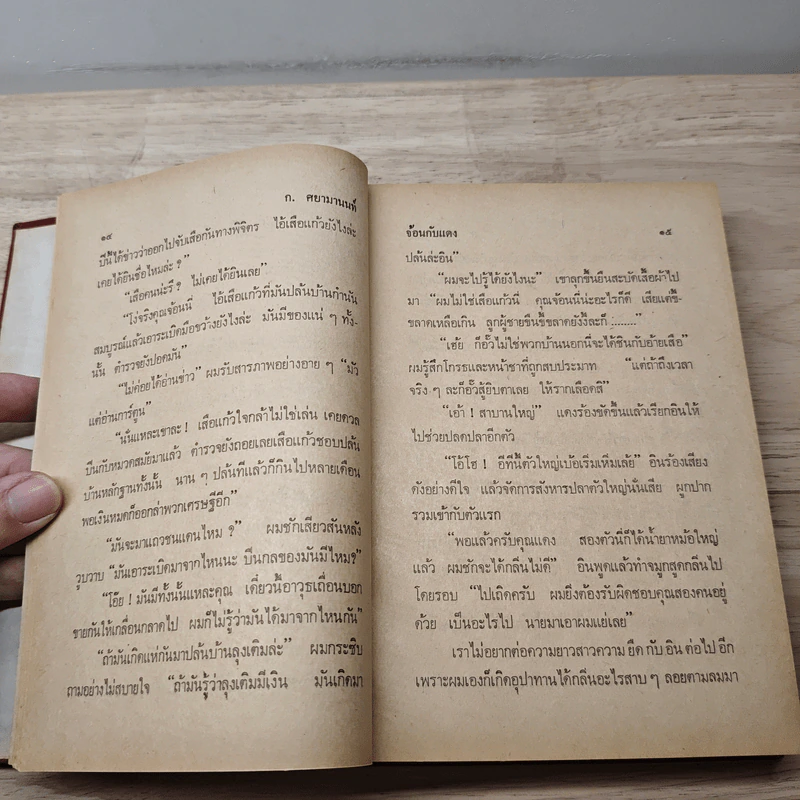 ๑๔
ก. ศยามานนท์
ปีนี้ได้ข่าวว่าออกไปจับเสือกันทางพิจิตร ไอ้เสือแก้วยังไงล่ะ
เคยได้ยินชื่อไหมล่ะ ?"
"เสือคนน่ะรึ ? ไม่เคยได้ยินเลย"
"โง่จริงคุณจ้อนนี่ ไอ้เสือแก้วที่มันปล้นบ้านกำนัน
สมบูรณ์แล้วเอาระเบิดมือขว้างยังไงล่ะ มันมีของแน่ ๆ ทั้ง-
นั้น ตำรวจยังปอดมัน"
"ไม่ค่อยได้อ่านข่าว" ผมรับสารภาพอย่างอาย ๆ "มัว
แต่อ่านการ์ตูน"
"นั่นแหละเขาละ ! เสือแก้วใจกล้าไม่ใช่เล่น เคยดวล
ปืนกับหมวดสมัยมาแล้ว ตำรวจยังถอยเลยเสือแก้วชอบปล้น
บ้านหลักฐานทั้งนั้น นาน ๆ ปล้นทีแล้วก็กินไปหลายเดือน
พอเงินหมดก็ออกล่าพวกเศรษฐีอีก"
"มันจะมาแถวชนแดนไหม ?" ผมชักเสียวสันหลัง
วูบวาบ "มันเอาระเบิดมาจากไหนนะ ปืนกลของมันมีไหม?"
"โอ๊ย ! มันมีทั้งนั้นแหละคุณ เดี๋ยวนี้อาวุธเถื่อนบอก
ขายกันให้เกลื่อนกลาดไป ผมก็ไม่รู้ว่ามันได้มาจากไหนกัน"
"ถ้ามันเกิดแห่กันมาปล้นบ้านลุงเติมล่ะ" ผมกระซิบ
ถามอย่างไม่สบายใจ "ถ้ามันรู้ว่าลุงเติมมีเงิน มันเกิดมา
จ้อนกับแดง
๑๕
ปล้นล่ะอิน"
"ผมจะไปรู้ได้ยังไงนะ" เขาลุกขึ้นยืนสะบัดเสื้อผ้าไป
มา "ผมไม่ใช่เสือแก้วนี่ คุณจ้อนนี่น่ะอะไรก็ดี เสียแต่ขี้
ขลาดเหลือเกิน ลูกผู้ชายขืนขี้ขลาดยังงี้ละก็ ........"
"เฮ้ย ก็อั๊วไม่ใช่พวกบ้านนอกนี่จะได้ชินกับอ้ายเสือ"
ผมรู้สึกโกรธและหน้าชาที่ถูกสบประมาท "แต่ถ้าถึงเวลา
จริง ๆ ละก็อั๊วสู้ยิบตาเลย ให้รากเลือดสิ"
"เอ้า ! สาบานใหญ่" แดงร้องขัดขึ้นแล้วเรียกอินให้
ไปช่วยปลดปลาอีกตัว
"โอ้โฮ ! อีทีนี้ตัวใหญ่เบ้อเริ่มเทิ่มเลย" อินร้องเสียง
ดังอย่างดีใจ แล้วจัดการสังหารปลาตัวใหญ่นั่นเสีย ผูกปาก
รวมเข้ากับตัวแรก
"พอแล้วครับคุณแดง สองตัวนี้ก็ได้น้ำยาหม้อใหญ่
แล้ว ผมชักจะได้กลิ่นไม่ดี" อินพูดแล้วทำจมูกสูดกลิ่นไป
โดยรอบ "ไปเถิดครับ ผมยิ่งต้องรับผิดชอบคุณสองคนอยู่
ด้วย เป็นอะไรไป นายมาเอาผมแย่เลย"
เราไม่อยากต่อความยาวสาวความ ยืด กับ อิน ต่อไป อีก
เพราะผมเองก็เกิดอุปาทานได้กลิ่นอะไรสาบ ๆ ลอยตามลมมา